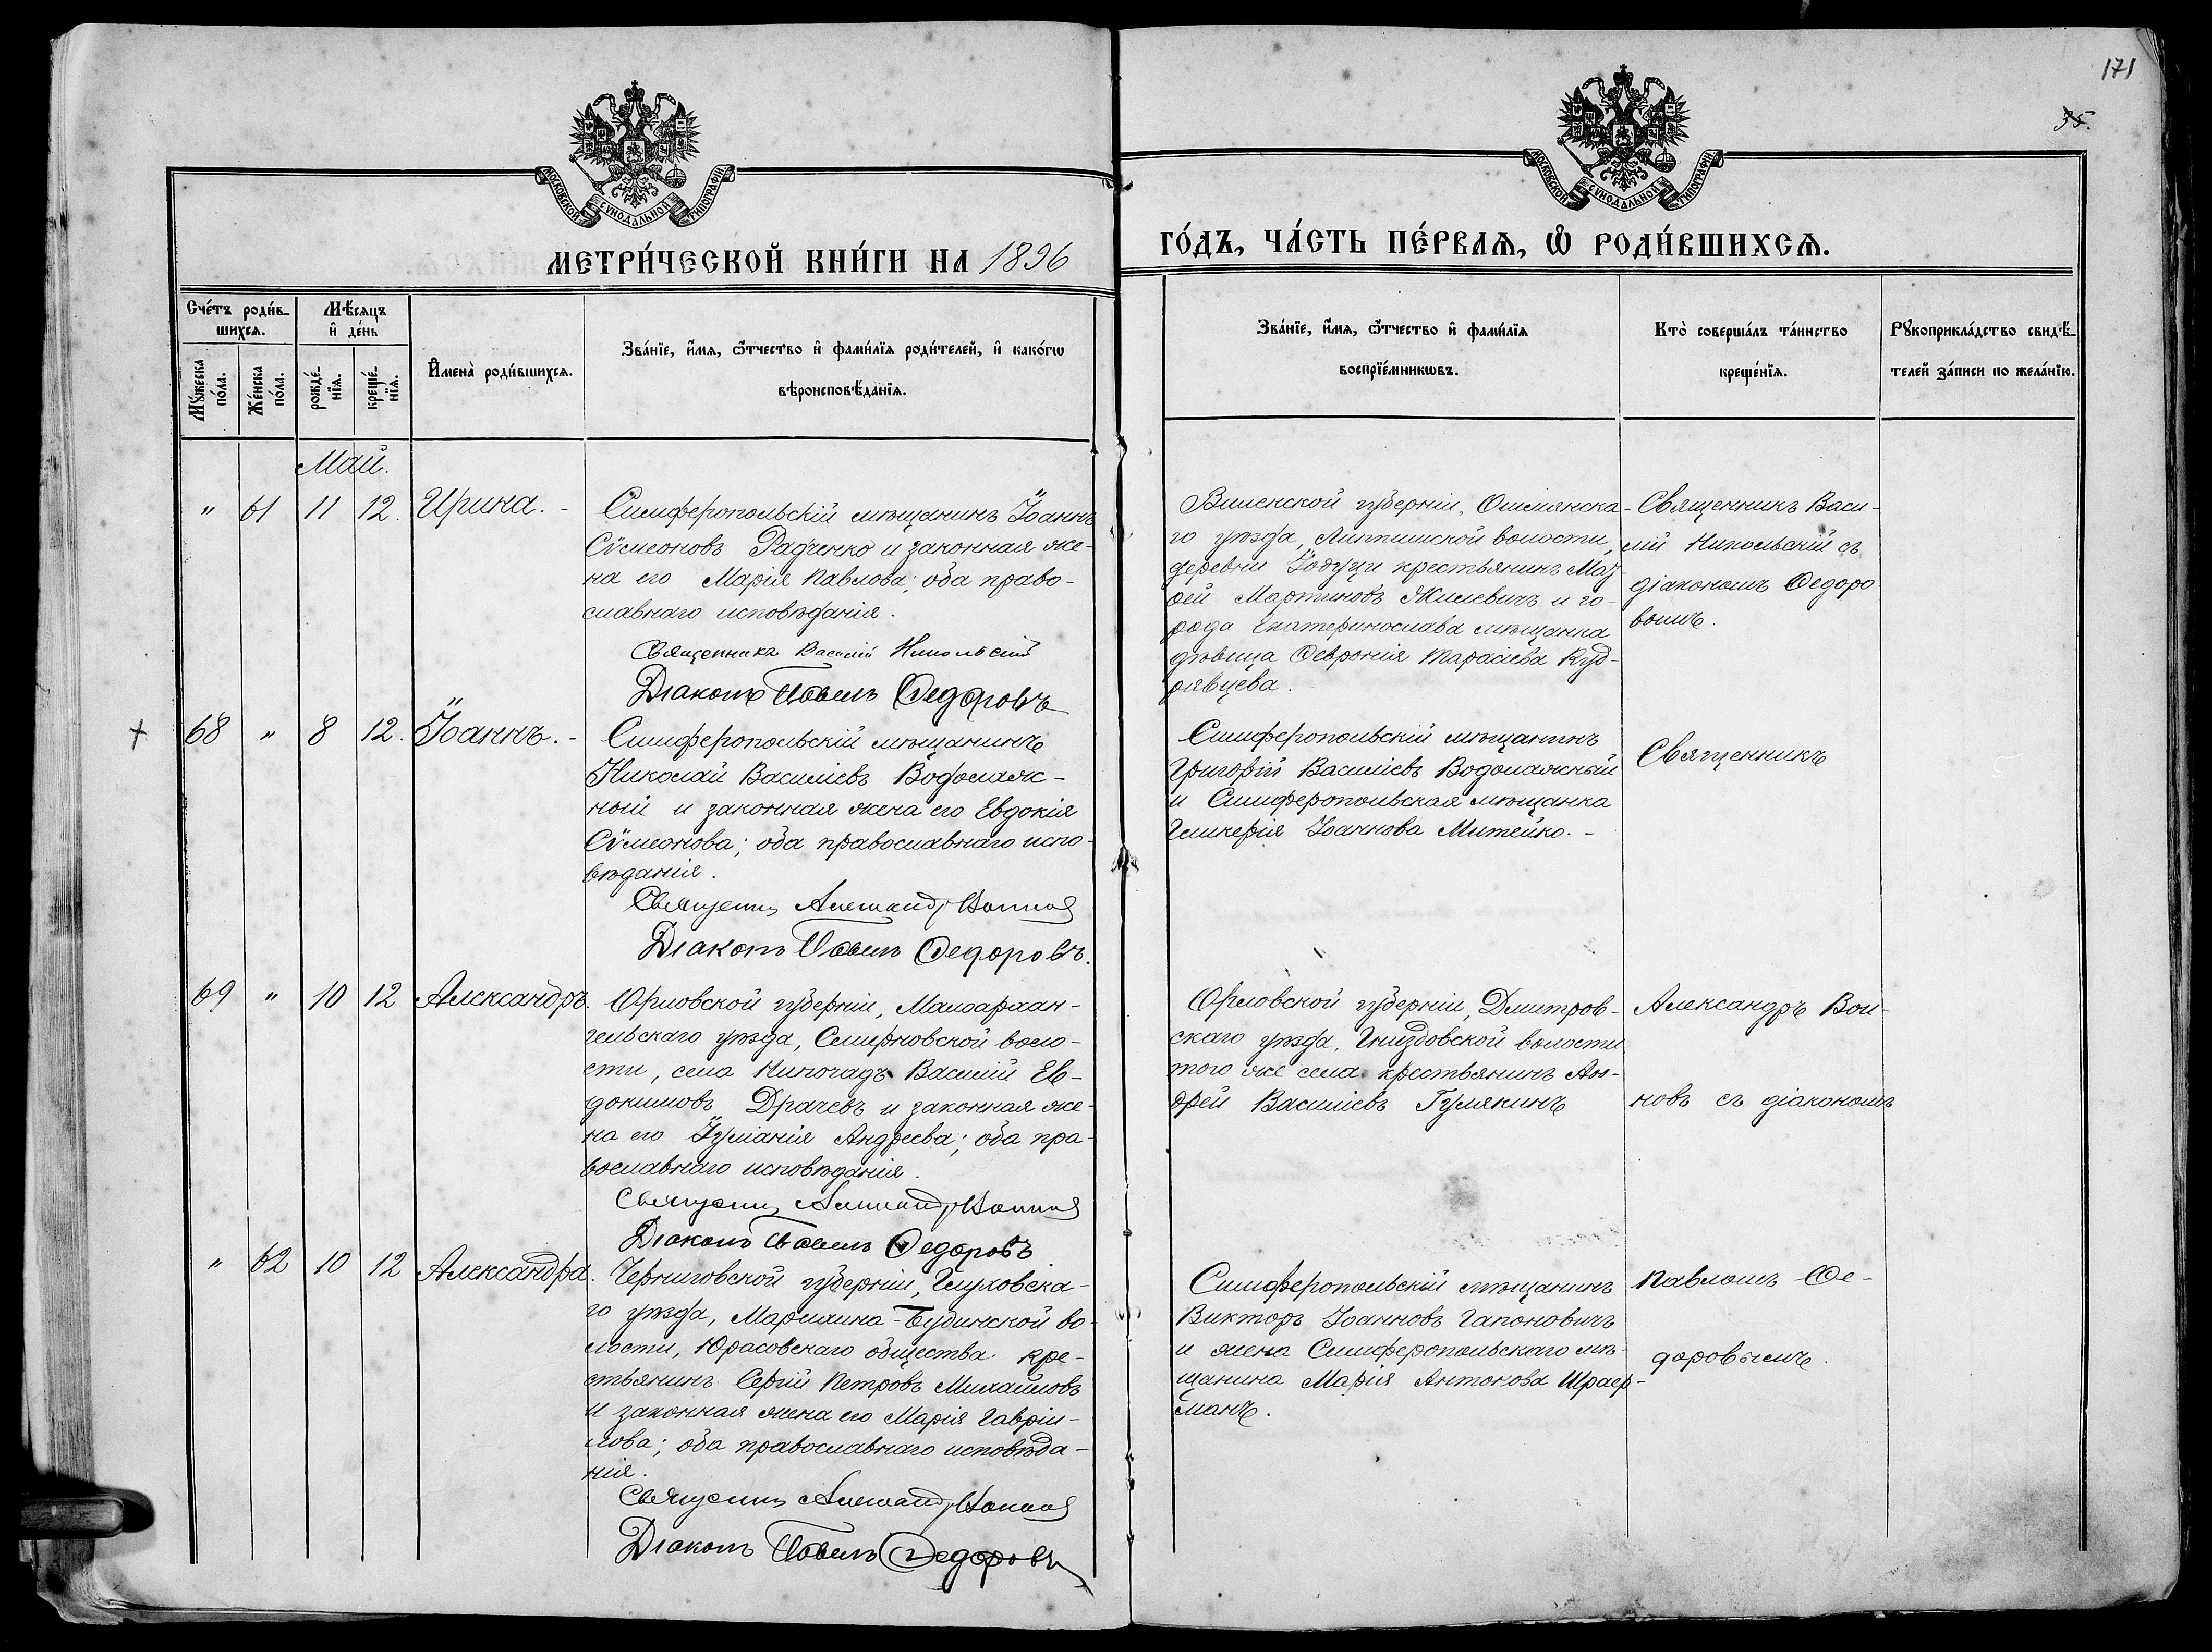 171
35.
МОСКОВСКОЙ СѴНОДАЛЬНОЙ ТИПОГРАФІИ.
МОСКОВСКОЙ СѴНОДАЛЬНОЙ ТИПОГРАФІИ.
МЕТРИ́ЧЕСКОЙ КНИ́ГИ НА 1896
ГО́ДЪ, ЧА́СТЬ ПЕ́РВАѦ, Ѡ҆ РОДИ́ВШИХСѦ.
Сче́тъ роди́в-
шихсѧ.
Мꙋ́жеска по́ла.
Же́нска по́ла.
Мѣ́сѧцъ
и҆ де́нь
рожде́-
нїѧ.
креще́-
нїѧ.
И҆мена̀ роди́вшихсѧ.
Зва́нїе, и҆́мѧ, ѻ҆́тчество и҆ фами́лїѧ роди́телей, и҆ како́гѡ
вѣроисповѣ́данїѧ.
Зва́нїе, и҆́мѧ, ѻ҆́тчество и҆ фами́лїѧ
воспрїе́мникѡвъ.
Кто̀ соверша́лъ та́инство
креще́нїѧ.
Рꙋкоприкла́дство свидѣ́-
телей за́писи по жела́нїю.
Май.
" 61 11 12. Ирина. -
Симферопольскій мѣщанинъ Іоаннъ
Сѵмеоновъ Радченко и законная же-
на его Марія Павлова; оба право-
славнаго исповѣданія.
Священникъ Василій Никольскій
Діаконъ Павелъ Ѳедоровъ
Виленской губерніи, Ошмянска-
го уѣзда, волости,
деревни крестьянинъ
Мартиновъ и го-
рода Екатеринослава мѣщанка
дѣвица Ѳевронія Тарасіева Куд-
рявцева.
Священникъ Васи-
лій Никольскій съ
діакономъ Ѳедоро
вымъ.
68 " 8 12. Іоаннъ. -
Симферопольскій мѣщанинъ
Николай Василіевъ Водолаж-
ный и законная жена его Евдокія
Сѵмеонова; оба православнаго испо-
вѣданія.
Священникъ Александръ Воиновъ
Діаконъ Павелъ Ѳедоровъ.
Симферопольскій мѣщанинъ
Григорій Василіевъ Водолажный
и Симферопольская мѣщанка
Гликерія Іоаннова Митейко. -
Священникъ
69 " 10 12 Александръ.
Орловской губерніи, Малоархан-
гельскаго уѣзда, воло-
сти, села Василій Ев-
докимовъ Драчевъ и законная же-
на его Іуліанія Андреева; оба пра-
вославнаго исповѣданія.
Священникъ Александръ Воиновъ
Діаконъ Павелъ Ѳедоровъ
Орловской губерніи, Дмитров-
скаго уѣзда, Гнѣздовской волости
того же села крестьянинъ Ан-
дрей Василіевъ Гулякинъ
Александръ Вои-
новъ съ діакономъ
" 62 10 12 Александра.
Черниговской губерніи, Глуховска-
го уѣзда, Марчихина-Будинской во-
лости, Юрасовскаго общества кре-
стьянинъ Сергій Петровъ Михайловъ
и законная жена его Марія Гаврии-
лова; оба православнаго исповѣда-
нія.
Священникъ Александръ Воиновъ
Діаконъ Павелъ Ѳедоровъ
Симферопольскій мѣщанинъ
Викторъ Іоанновъ Гапоновичъ
и жена Симферопольскаго мѣ-
щанина Марія Антонова Шраер-
манъ.
Павломъ Ѳе-
доровымъ.